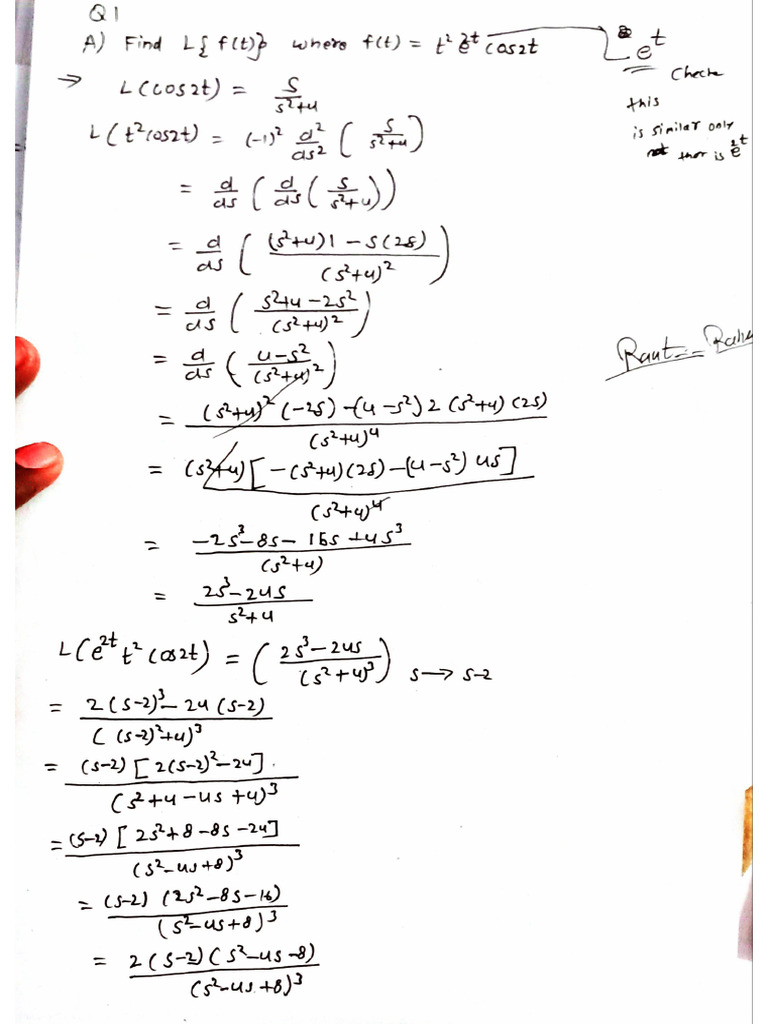 Q1
A) Find L{f(t)} where f(t) = t² e²ᵗ cos2t
eᵗ
Check
this
is similar only
not ther is e²ᵗ
→ L(cos2t) = s/(s²+4)
L(t²cos2t) = (-1)² d²/ds² (s/(s²+4))
= d/ds (d/ds (s/(s²+4)))
= d/ds (((s²+4)1 - s(2s))/(s²+4)²)
= d/ds ((s²+4-2s²)/(s²+4)²)
= d/ds ((4-s²)/(s²+4)²)
= ((s²+4)²(-2s) - (4-s²)2(s²+4)(2s))/(s²+4)⁴
= (s²+4)[-(s²+4)(2s) - (4-s²)4s]/(s²+4)⁴
= (-2s³-8s-16s+4s³)/(s²+4)
= (2s³-24s)/(s²+4)
L(e²ᵗ t² cos2t) = ((2s³-24s)/(s²+4)³) s→s-2
= (2(s-2)³-24(s-2))/((s-2)²+4)³
= (s-2)[2(s-2)²-24]/(s²+4-4s+4)³
= (s-2)[2s²+8-8s-24]/(s²-4s+8)³
= (s-2)(2s²-8s-16)/(s²-4s+8)³
= 2(s-2)(s²-4s-8)/(s²-4s+8)³